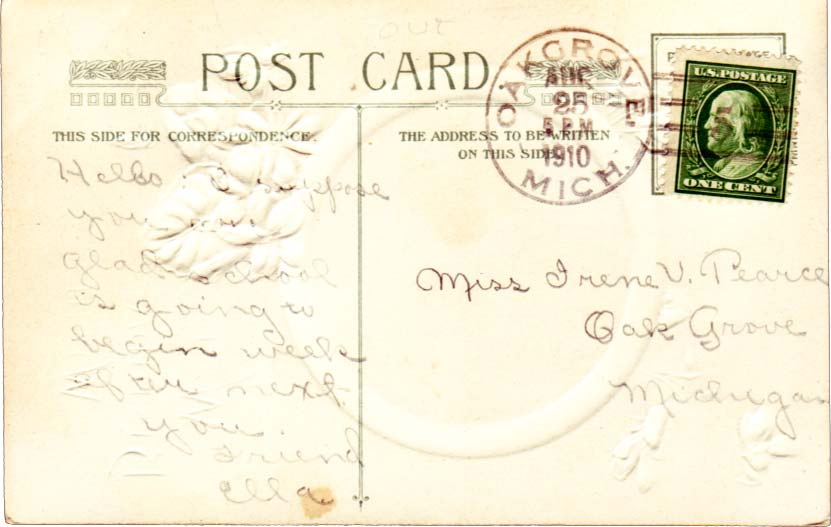 out
POST CARD
OAK GROVE,
AUG
25
5 P M
1910
MICH.
U.S. POSTAGE
ONE CENT
THIS SIDE FOR CORRESPONDENCE.
THE ADDRESS TO BE WRITTEN
ON THIS SIDE
Hello: I suppose
you are
glad school
is going to
begin week
after next.
you.
Friend
Ella.
Miss Irene V. Pearce
Oak Grove
Michigan